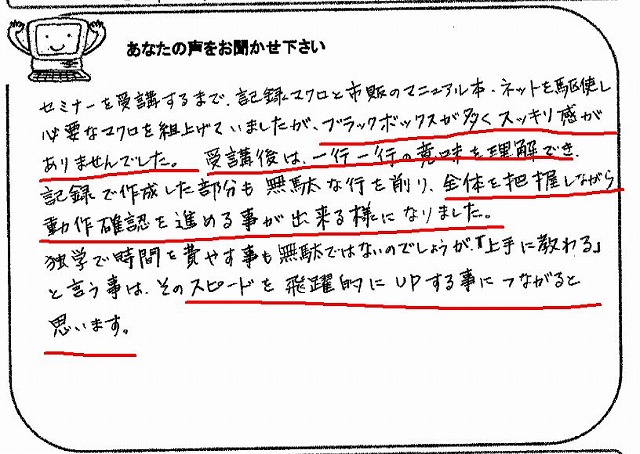 あなたの声をお聞かせ下さい
セミナーを受講するまで、記録マクロと市販のマニュアル本・ネットを駆使し
必要なマクロを組上げていましたが、ブラックボックスが多くスッキリ感が
ありませんでした。 受講後は、一行一行の意味を理解でき、
記録で作成した部分も無駄な行を削り、全体を把握しながら
動作確認を進める事が出来る様になりました。
独学で時間を費やす事も無駄ではないのでしょうが、「上手に教わる」
と言う事は、そのスピードを飛躍的にUPする事につながると
思います。